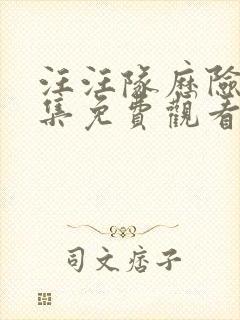 汪汪隊歷險
集免費觀看
司文痞子